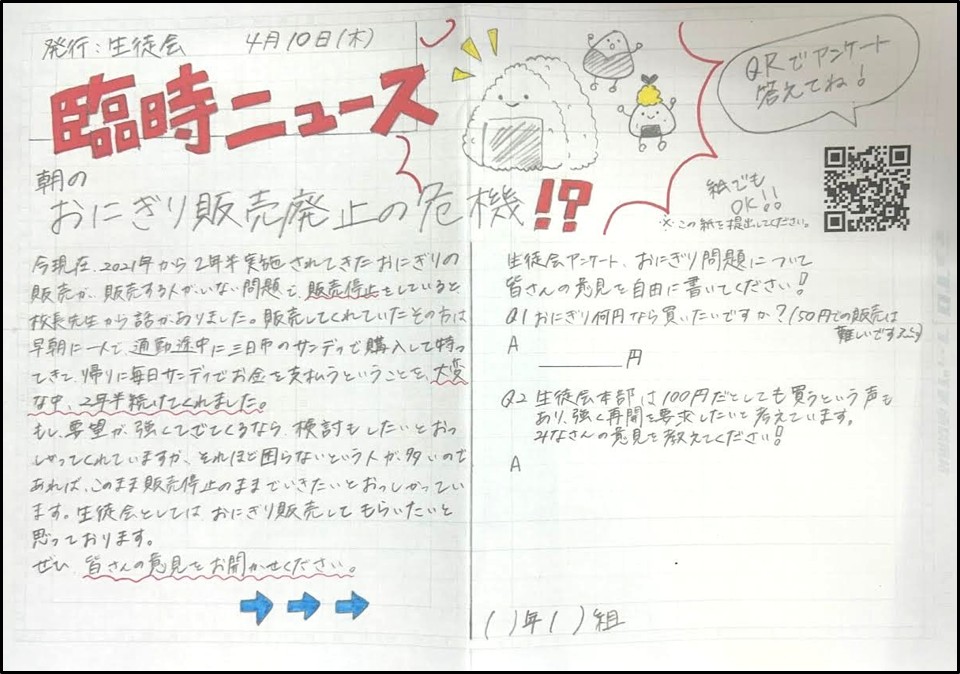 発行：生徒会　4月10日(木)
臨時ニュース
朝の
おにぎり販売廃止の危機!?
QRでアンケート
答えてね！
紙でも
OK!!
※この紙を提出してください。
今現在、2021年から2年半実施されてきたおにぎりの
販売が、販売する人がいない問題で、販売停止をしていると
校長先生から話がありました。販売してくれていたその方は
早朝に一人で、通勤途中に三日市のサンディで購入して持っ
てきて、帰りに毎日サンディでお金を支払うということを、大変
な中、2年半続けてくれました。
もし、要望が、強くでてくるなら、検討もしたいとおっ
しゃってくれていますが、それほど困らないという人が、多いので
あれば、このまま販売停止のままでいきたいとおっしゃってい
ます。生徒会としては、おにぎり販売してもらいたいと
思っております。
ぜひ、皆さんの意見をお聞かせください。
生徒会アンケート、おにぎり問題について
皆さんの意見を自由に書いてください！
Q1 おにぎり何円なら買いたいですか？(50円での販売は
難しいです)
A
円
Q2 生徒会本部は100円だとしても買うという声も
あり、強く再開を要求したいと考えています。
みなさんの意見を教えてください！
A
(　)年(　)組